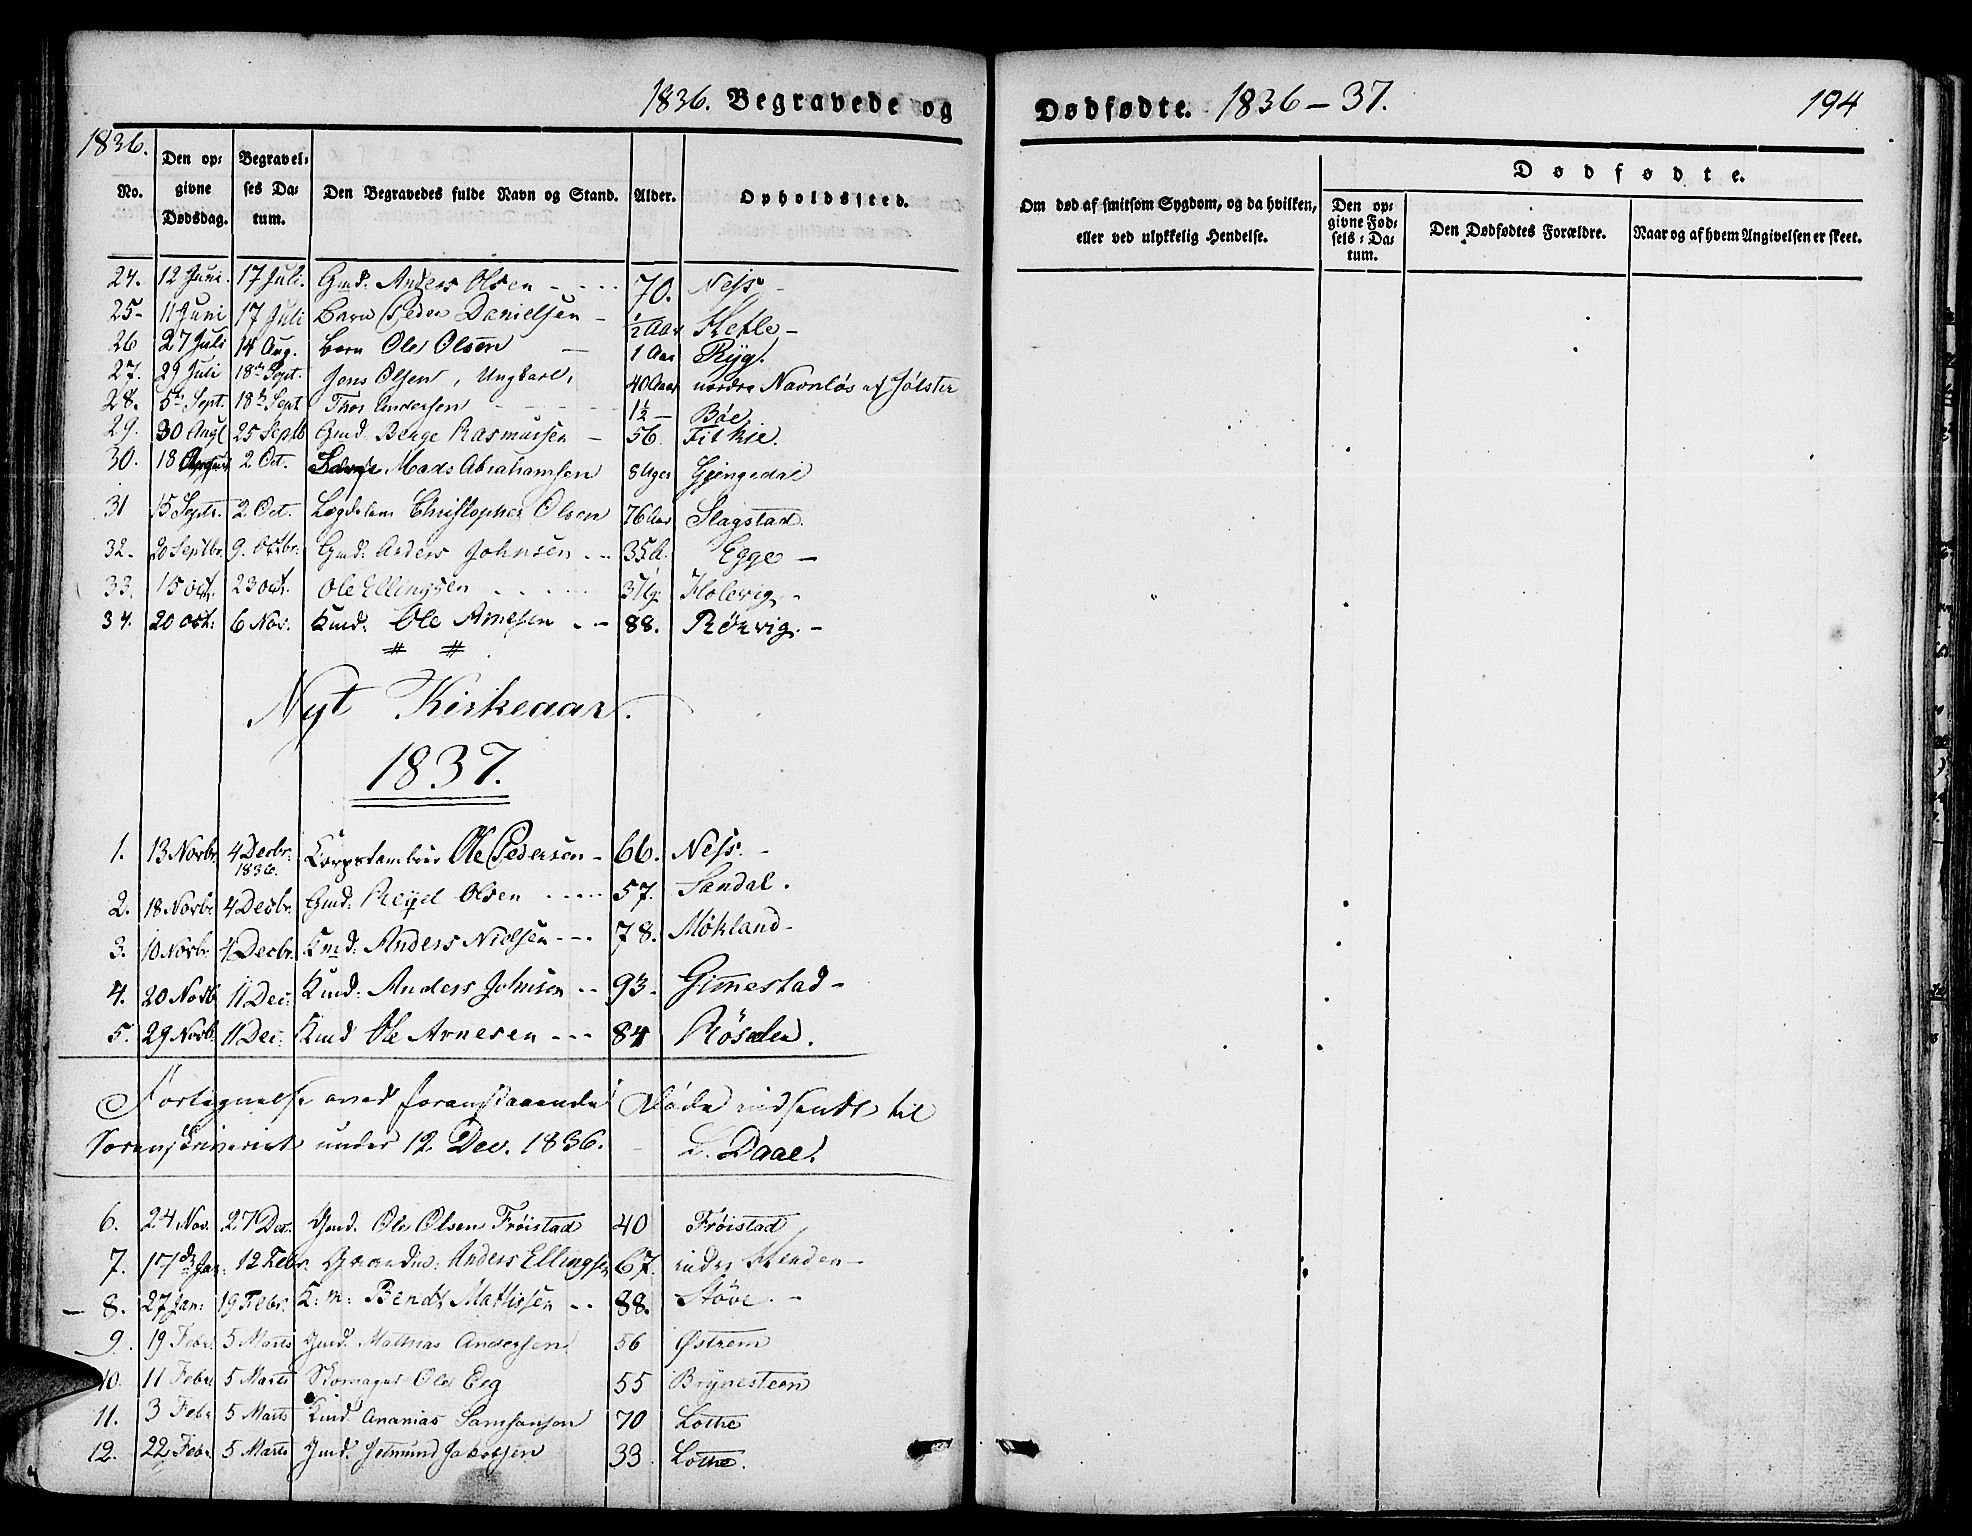 1836. Begravede og
Dødfødte. 1836–37. 194
1836.
No. Den opgivne Dødsdag. Begravelses Datum. Den Begravedes fulde Navn og Stand. Alder. Opholdssted.
Om død af smitsom Sygdom, og da hvilken, eller ved ulykkelig Hendelse.
Dødfødte.
Den opgivne Fødsels-Datum. Den Dødfødtes Forældre. Naar og af hvem Angivelsen er skeet.
24. 12 Juni. 17 Juli. Gmd: Anders Olsen - - - 70. Ness -
25- 11 Juni 17 Juli barn Peder Danielsen - 1/2 Aar Hefle -
26 27 Juli 14 Aug. barn Ole Olsen - 1 Aar Ryg.
27. 29 Juli 18de Sept. Jens Olsen, Ungkarl, 40 Aar nordre Navnløs af Jølster
28. 5te Sept. 18de Sept Thor Andersen - - - 1½ - Bøe
29. 30 Augt 25 Septb Gmd. Berge Rasmussen - 56. Fitkie.
30. 18 August 2 Oct. Mads Abrahamsen 8 Uger Gjengedal
31 15 Septr. 2 Oct. Lægdslem Christopher Olsen 76 Aar Slagstad.
32. 20 Septbr. 9. Octbr. Gmd: Anders Johnsen - - 35 A. Egge -
33. 15 oct. 23 oct. Ole Ellingsen - - - Holevig -
34. 20 oct: 6 Nov. Kmd: Ole Arnesen - - 88. Rørvig. -
# #
Nyt Kirkeaar.
1837.
1. 13 Novbr. 4 Decbr. 1836. Korpstambur Ole Pedersen - 66. Ness. -
2. 18 Novbr. 4 Decbr. Gmd: Reyel Olsen - - - 57. Sandal.
3. 10 Novbr. 4 Decbr. Kmd: Anders Nielsen - - - 78. Møkland -
4. 20 Novb 11 Dec: Kmd: Anders Johnsen - - 93. Gimestad -
5. 29 Novb. 11 Dec: Kmd Ole Arnesen - - - 84 Røsælen.
Fortegnelse over foranstaaende Døde indsendt til
Sorenskriveriet under 12. Dec. 1836. - L. Daae.
6. 24 Nov. 27 Dec. Gmd. Ole Olsen Frøistad 40 Frøistad
7. 17de Jan: 12 Febr. Gaardm: Anders Ellingsen 67. indre Henden -
- 8. 27 Jan: 19 Febr. K: m: Bendt Mattissen - - 88. Støve. -
9. 19 Febr. 5 Marts Gmd. Mathias Andersen 56 Østrem
10. 11 Febr 5 Marts Skomager Ole Eeg 55 Brynesteen
11. 3 Febr 5 Marts Kmd Ananias Samsonsen 70 Lothe
12. 22 Febr 5 Marts Gmd. Jetmund Jakobsen 33. Lothe.